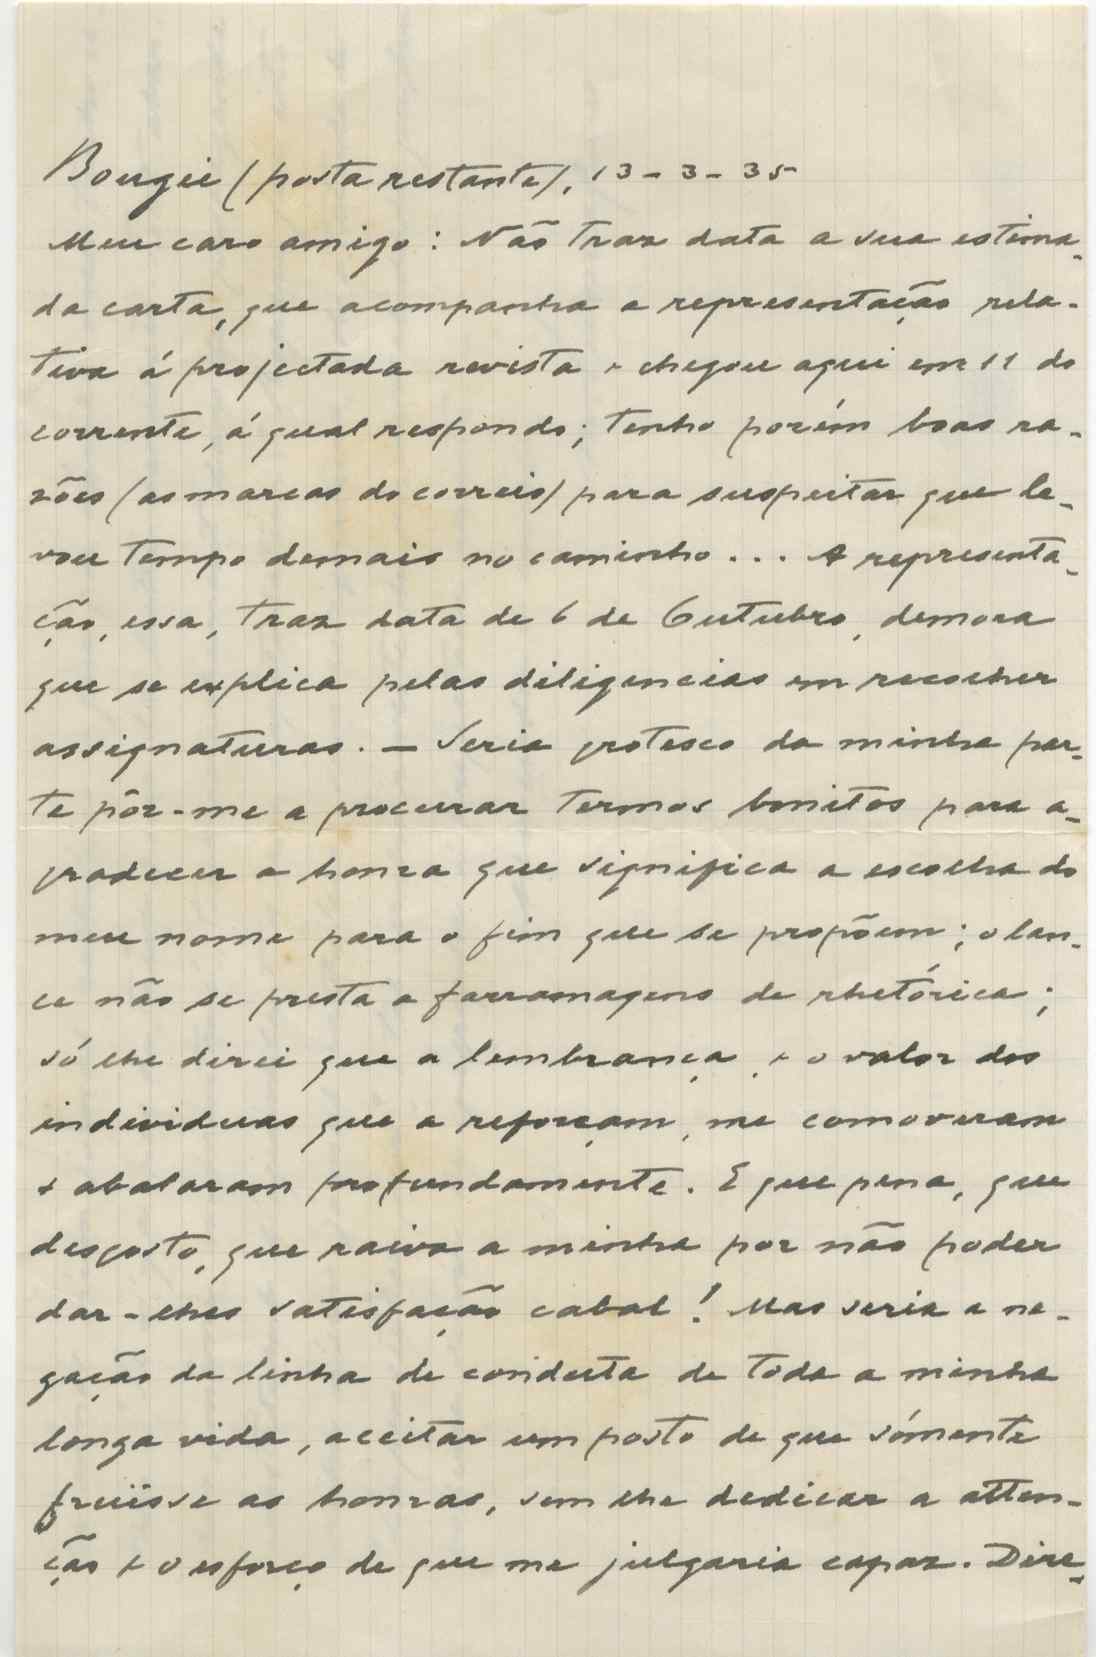 Bougie (posta restante), 13-3-35
Meu caro amigo: Não traz data a sua estima-
da carta, que acompanha a representação rela-
tiva á projectada revista e chegou aqui em 11 do
corrente, á qual respondo; tenho porém boas ra-
zões (as marcas do correio) para suspeitar que le-
vou tempo demais no caminho... A representa-
ção, essa, traz data de 6 de Outubro, demora
que se explica pelas diligencias em recolher
assignaturas. — Seria grotesco da minha par-
te pôr-me a procurar termos bonitos para a-
gradecer a honra que significa a escolha do
meu nome para o fim que se propõem; o lan-
ce não se presta a farramagens de rhetórica;
só lhe direi que a lembrança, e o valor dos
individuos que a reforçam, me comoveram
e abalaram profundamente. E que pena, que
desgosto, que raiva a minha por não poder
dar-lhes satisfação cabal! Mas seria a ne-
gação da linha de conducta de toda a minha
longa vida, aceitar um posto de que sómente
fruïsse as honras, sem lhe dedicar a atten-
ção e o esforço de que me julgaria capaz. Dire-